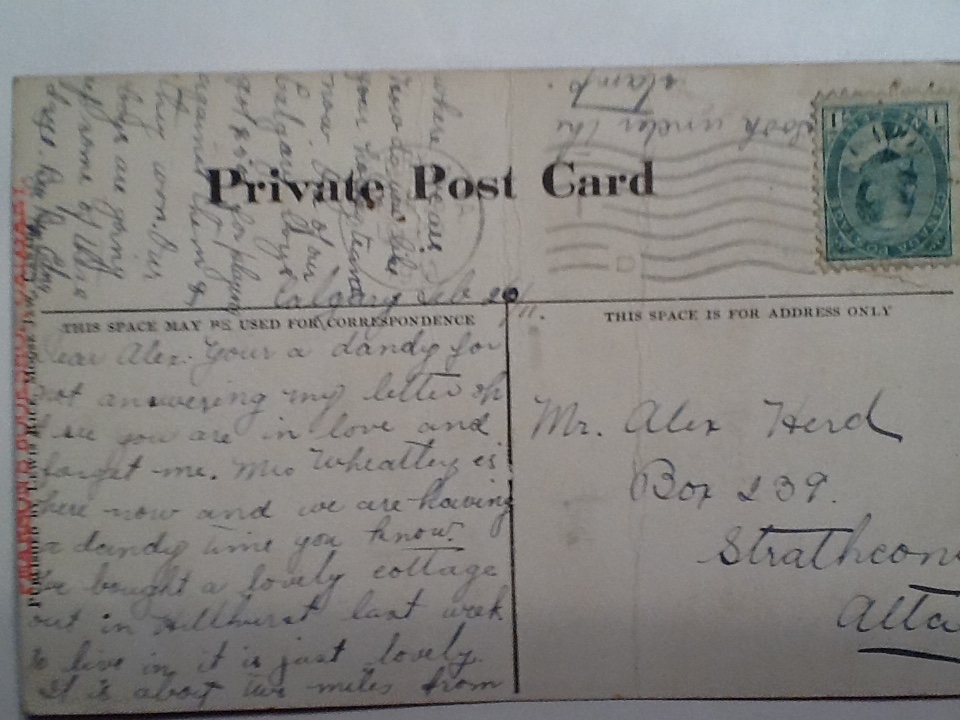 Private Post Card
Look under the
stamp.
Calgary Feb 20/11.
THIS SPACE MAY BE USED FOR CORRESPONDENCE
THIS SPACE IS FOR ADDRESS ONLY
Dear Alex. Your a dandy for
not answering my letter oh
I see you are in love and
forget me. Mrs Wheatley is
here now and we are having
a dandy time you know.
We bought a lovely cottage
out in Hillhurst last week
to live in it is just lovely.
It is about two miles from
where we are
now
your team
now
Calgary boys
got for playing
against them &
they won. Our
boys are going
up some of these
days. Bye Bye
Mr. Alex Herd
Box 239.
Strathcon
Alta